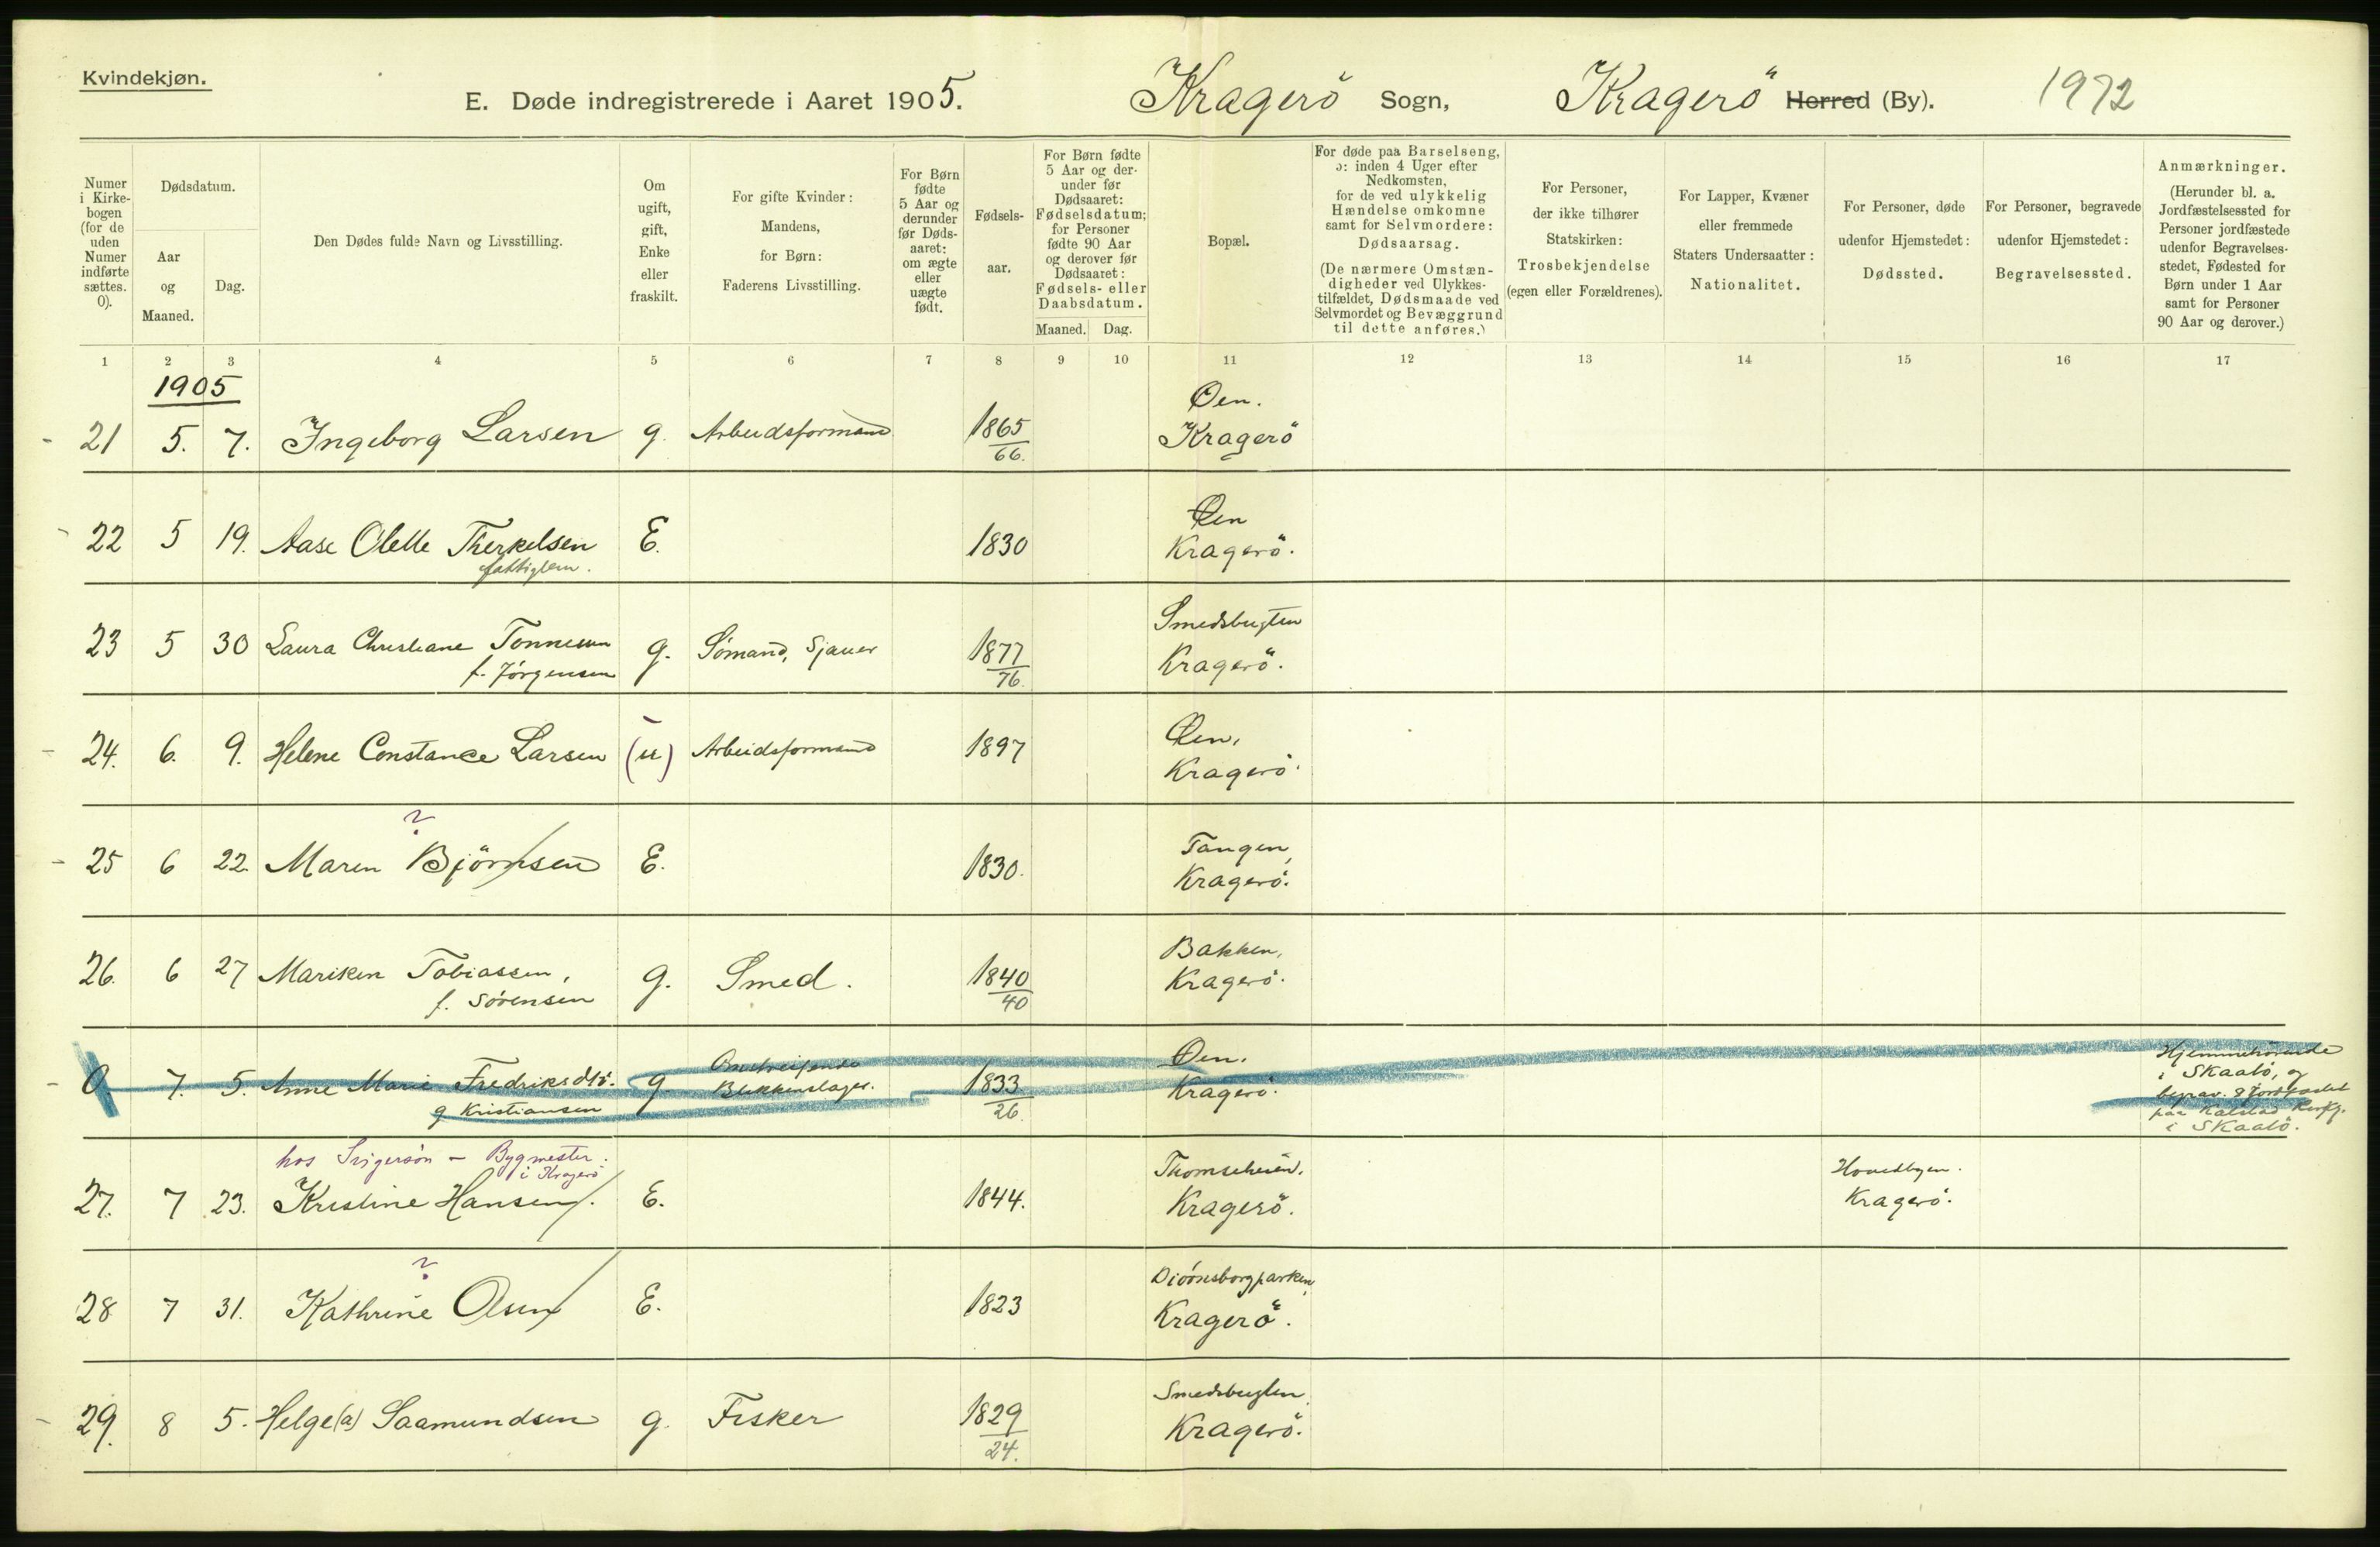 Kvindekjøn.
E. Døde indregistrerede i Aaret 1905. Kragerö Sogn, Kragerö Herred (By). 1972
Numer i Kirkebogen (for de uden Numer indførte sættes. 0).
Dødsdatum.
Aar og Maaned.
Dag.
Den Dødes fulde Navn og Livsstilling.
Om ugift, gift, Enke eller fraskilt.
For gifte Kvinder: Mandens, for Børn: Faderens Livsstilling.
For Børn fødte 5 Aar og derunder før Dødsaaret: om ægte eller uægte født.
Fødselsaar.
For Børn fødte 5 Aar og derunder før Dødsaaret: Fødselsdatum; for Personer fødte 90 Aar og derover før Dødsaaret: Fødsels- eller Daabsdatum.
Maaned. Dag.
Bopæl.
For døde paa Barselseng, ɔ: inden 4 Uger efter Nedkomsten, for de ved ulykkelig Hændelse omkomne samt for Selvmordere: Dødsaarsag.
(De nærmere Omstændigheder ved Ulykkestilfældet, Dødsmaade ved Selvmordet og Bevæggrund til dette anføres.)
For Personer, der ikke tilhører Statskirken: Trosbekjendelse (egen eller Forældrenes).
For Lapper, Kvæner eller fremmede Staters Undersaatter: Nationalitet.
For Personer, døde udenfor Hjemstedet: Dødssted.
For Personer, begravede udenfor Hjemstedet: Begravelsessted.
Anmærkninger.
(Herunder bl. a. Jordfæstelsessted for Personer jordfæstede udenfor Begravelsesstedet, Fødested for Børn under 1 Aar samt for Personer 90 Aar og derover.)
1 2 3 4 5 6 7 8 9 10 11 12 13 14 15 16 17
1905
21 5. 7. Ingeborg Larsen g. Arbeidsformand 1865 Øen.
66. Kragerö
22 5 19. Aase Olette Therkelsen E. 1830 Øen
fattiglem. Kragerö.
23 5 30 Laura Christiane Tönnesen g. Sömand, Sjauer 1877 Smedsbugten
f. Jörgensen 76. Kragerö.
24. 6. 9. Helene Constance Larsen (u) Arbeidsformand 1897 Øen,
Kragerö.
?
25 6 22. Maren Björnsen E. 1830. Tangen,
Kragerö.
26. 6 27 Mariken Tobiassen, g. Smed. 1840 Bakken,
f. Sörensen 40 Kragerö.
0 7. 5. Anne Marie Fredriksdtr. g Omstreifende 1833 Øen. Hjemmehörende
g Kristiansen Blikkenslager. 26. Kragerö. i Skaatö, og
begrav. & jordfæstet
paa Kalstad Kirkg.
i Skaatö.
hos - Bygmester.
i Kragerö
27. 7 23. Kristine Hansen. E. 1844. Thomseheien. Hovedbyen.
Kragerö. Kragerö.
?
28 7 31. Kathrine Olsen E. 1823
Kragerö.
29. 8 5. Helge(a) Saamundsen g. Fisker 1829 Smedsbugten,
24. Kragerö.